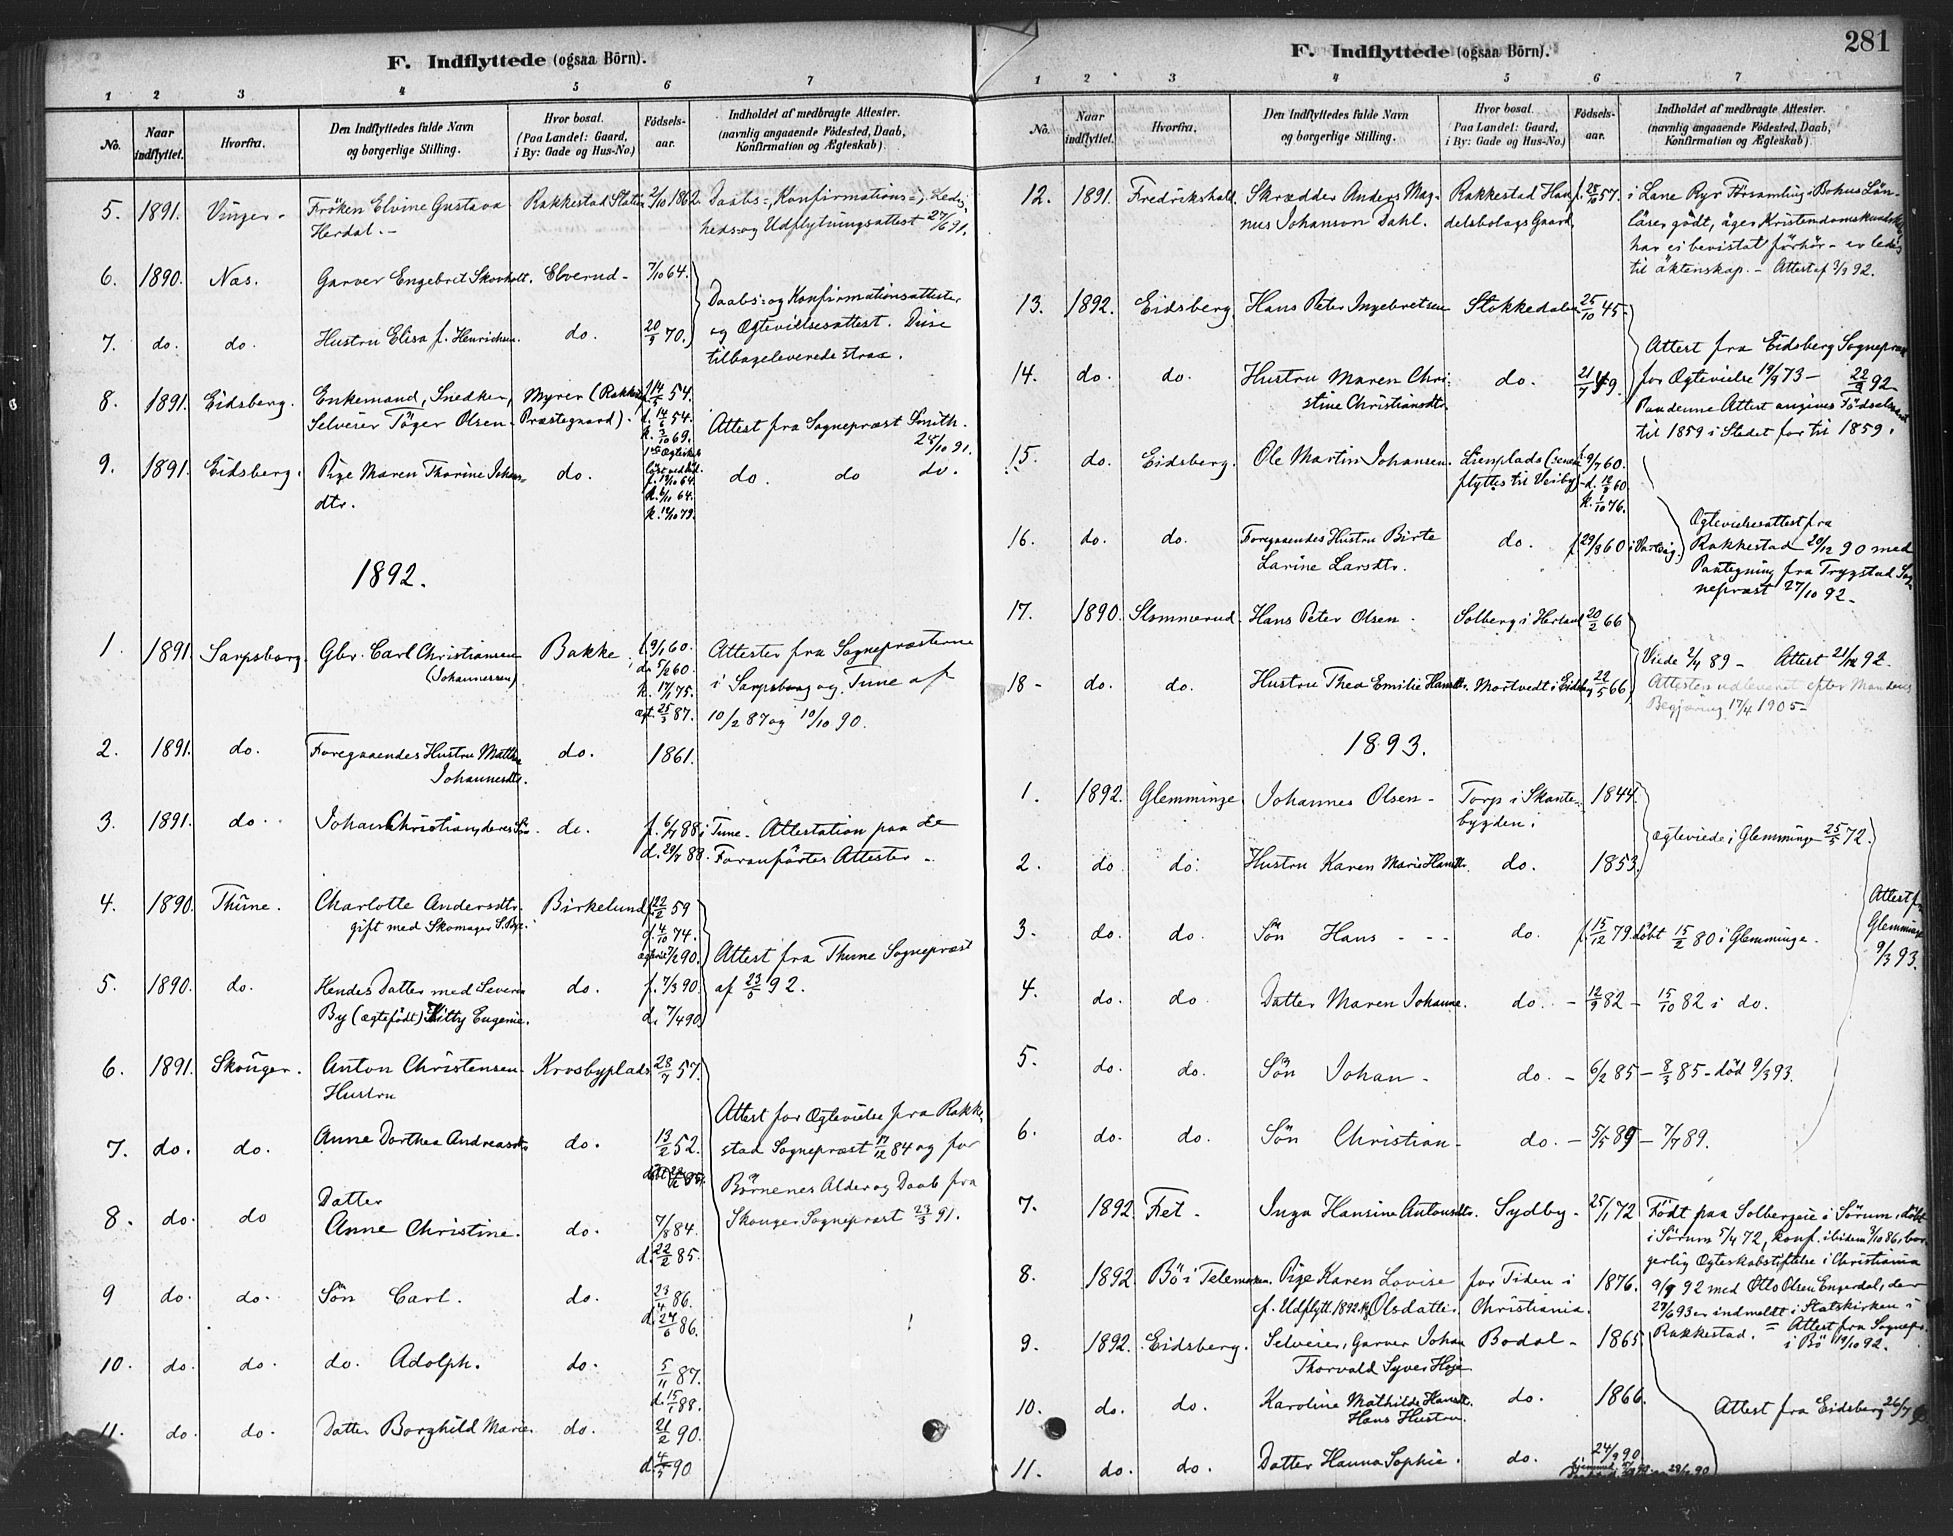 F. Indflyttede (ogsaa Börn).
1 2 3 4 5 6 7
No. Naar indflyttet. Hvorfra. Den Indflyttedes fulde Navn og borgerlige Stilling. Hvor bosat. (Paa Landet: Gaard, i By: Gade og Hus-No.) Födsels-aar. Indholdet af medbragte Attester. (navnlig angaaende Födested, Daab, Konfirmation og Ægteskab).
5. 1891. Vinger - Frøken Elvine Gustava Rakkestad Station 2/10 1862. Daabs-, Konfirmations-, Ledig-
Herdal. - heds- og Udflytningsattest 27/6 91.
6. 1890. Nas. Garver Engebret Skovholt. Elverud - 7/10 64.
Daabs- og Konfirmationsattester
7. do. do. Hustru Elisa f. Henrichsen. do. 20/9 70. og Ægtevielsesattest. Disse
tilbageleverede strax.
8. 1891. Eidsberg. Enkemand, Snedker, Myrer (Rakke 14/5 54.
Selveier Töger Olsen. Præstegaard). d. 14/6 54. Attest fra Sognepræst Smith
k. 3/10 69. 28/10 91.
9. 1891. Eidsberg. Pige Maren Thorine Johans- do. do. do do.
dtr. k. 12/10 79.
1892.
1. 1891. Sarpsborg. Gbr. Carl Christiansen Bakke f. 9/1 60. Attester fra Sognepræsterne
(Johannessen) d. 5/2 60 i Sarpsborg og Tune af
k. 17/7 75. 10/2 87 og 10/10 90.
ægt. 25/3 87.
2. 1891. do. Foregaaendes Hustru Mathea do. 1861.
Johannesdtr.
3. 1891. do. Johan Christian, deres Sön. do. f. 6/7 88 i Tune - Attestation paa de
d. 29/7 88. Foranførtes Attester -
4. 1890. Thune. Charlotte Andersdtr. Birkelund f. 22/2 59
gift med Skomager S. Bye. d. 4/10 74. Attest fra Thune Sognepræst
5. 1890. do. Hendes Datter med Severin do. f. 7/3 90. af 23/5 92.
By (ægtefödt) Kitty Eugenie. d. 7/4 90.
6. 1891. Skouger. Anton Christensen Krosbyplads 28/7 57.
Hustru Attest for Ægtevielse fra Rakke-
7. do. do. Anne Dorthea Andreasdtr. do. 13/2 52. stad Sognepræst 17/12 84 og for
Börnenes Alder og Daab fra
Datter
8. do. do Anne Christine. do. 7/8 84. Skouger Sognepræst 23/3 91.
d. 22/2 85.
9 do. do. Sön Carl. do. 23/4 86.
d. 24/6 86.
10. do. do. do. Adolph. do. 5/11 87.
d. 15/1 88.
11. do. do. Datter Borghild Marie. do. 21/2 90.
d. 4/5 90
281
F. Indflyttede (ogsaa Börn).
1 2 3 4 5 6 7
No. Naar indflyttet. Hvorfra. Den Indflyttedes fulde Navn og borgerlige Stilling. Hvor bosat. Paa Landet: Gaard, i By: Gade og Hus-No.) Födsels-aar. Indholdet af medbragte Attester. (navnlig angaaende Födested, Daab, Konfirmation og Ægteskab)
12. 1891. Fredrikshald. Skrædder Anders Mag- Rakkestad Han- f. 25/10 57. i Lane Ryr Församling i Bohus Län -
nus Johanson Dahl. delsbolags Gaard, läser godt, äger Kristendomskundskap
har ei bevistat förhör - er ledig
til äktenskap. - Attest af 3/3 92.
13. 1892. Eidsberg Hans Peter Ingebretsen Stokkedalen 25/10 45 -
Attest fra Eidsberg Sognepræst
14. do. do. Hustru Maren Chri- do. 21/7 49. for Ægtevielse 19/9 73 - 22/3 92
stine Christiansdtr. Paa denne Attest angives Födselsaaret
til 1859 i Stedet for til 1859.
15. do. Eidsberg. Ole Martin Johansen. Lienplads (senere f. 9/7 60.
flyttes til Veiby) - d. 12/8 60
k. 1/10 76. Ægtevielsesattest fra
16. do. do. Foregaaendes Hustru Birte do. f. 29/3 60 i Varteig. Rakkestad 29/12 90 med
Larine Larsdtr. Paategning fra Trygstad Sog-
nepræst 27/10 92 -
17. 1890. Slemmerud. Hans Peter Olsen - Solberg i Herland 20/2 66
Viede 2/4 89 - Attest 21/12 92.
18 - do. do. Hustru Thea Emilie Hansdtr. Mortvedt i Eidsberg 22/5 66, Attesten udleveret efter Mandens
Begjæring 17/4 1905 -
1893.
1. 1892. Glemminge Johannes Olsen - Torp i Skante- 1844.
bygden.
ægteviede i Glemminge 25/5 72.
2. do do. Hustru Karen Marie Hansdtr. do. 1853.
Attest fra
3. do. do. Sön Hans - - - do. f. 15/12 79. döbt 15/2 80 i Glemminge. Glemminge
9/3 93.
4. do. do. Datter Maren Johanne. do. - 12/9 82 - 15/10 82 i do.
5. do. do. Sön Johan - do. - 6/2 85 - 8/3 85 - död 9/3 93.
6. do. do. Sön Christian - do. - 5/5 89 - 7/7 89.
7. 1892 Fet - Inga Hansine Antonsdtr. Sydby - 25/1 72 Födt paa Solbergeie i Sörum, döbt
i Sörum 5/4 72, konf. ibidem 3/10 86, bor-
gerlig Ægteskabstiftelse i Christiania
8. 1892. Bö i Telemarken. Pige Karen Lovise for Tiden i 1876. 9/9 92 med Otto Olsen Engerdal, der
cf. Udflytt. 1892. Olsdatter. Christiania. 29/6 93 er indmeldt i Statskirken i
Rakkestad. = Attest fra Sognepr.
9. 1892. Eidsberg. Selveier, Garver Johan Bodal - 1865. i Bö 19/10 92.
Thorvald Syver Hoje
10. do. do. Karoline Mathilde Hansdtr. do. 1866. Attest fra Eidsberg 26/7
Hans Hustru.
11. do. do. Datter Hanna Sophie. do. 24/9 90